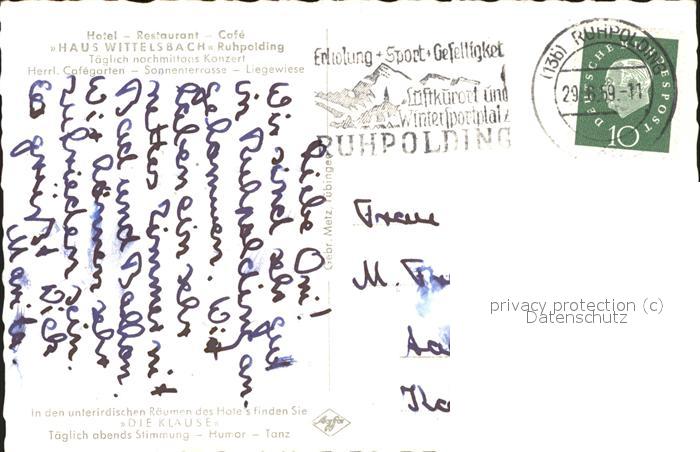 Hotel – Restaurant – Café
»HAUS WITTELSBACH« Ruhpolding
Täglich nachmittags Konzert
Herrl. Cafégarten – Sonnenterrasse – Liegewiese
Liebe Omi!
Wir sind sehr gut
in Ruhpolding an-
gekommen. Wir
haben ein sehr
nettes Zimmer mit
Bad und Balkon.
Wir können sehr
zufrieden sein.
Es grüßt Dich
In den unterirdischen Räumen des Hotels finden Sie
»DIE KLAUSE«
Täglich abends Stimmung – Humor – Tanz
Gebr. Metz, Tübingen
Agfa
Erholung + Sport + Geselligkeit
Luftkurort und
Wintersportplatz
RUHPOLDING
(13b) RUHPOLDING
29.6.59.-11
DEUTSCHE BUNDESPOST
10
Frau
M.
privacy protection (c)
Datenschutz